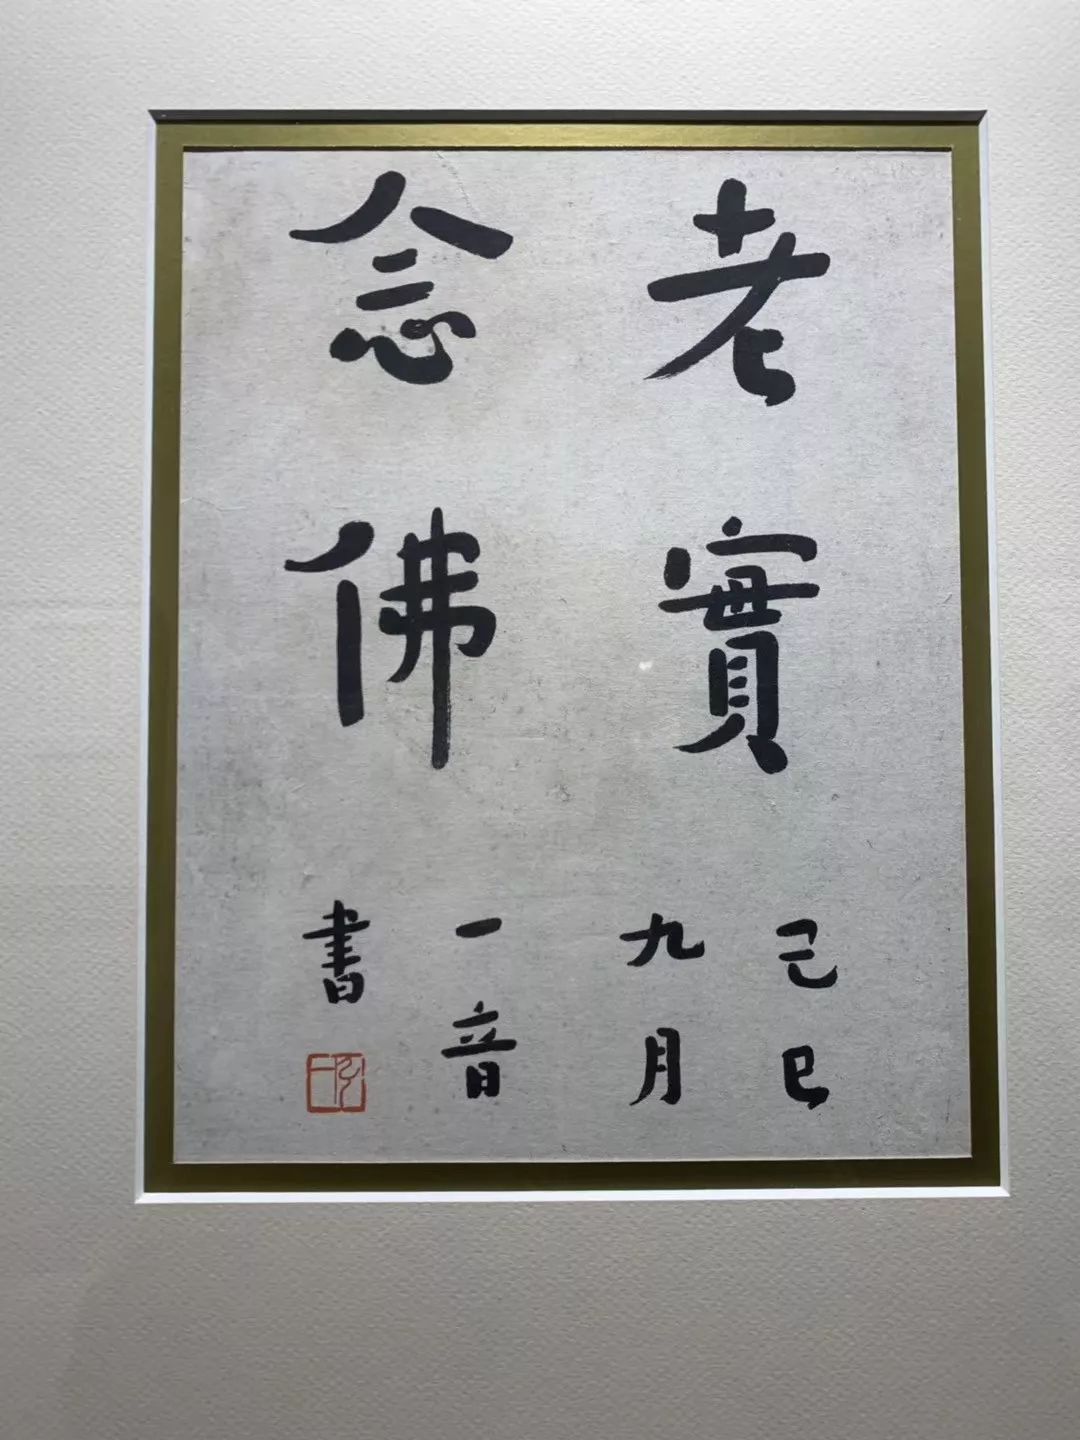 老實
念佛
己巳
九月
一音
書
弘一